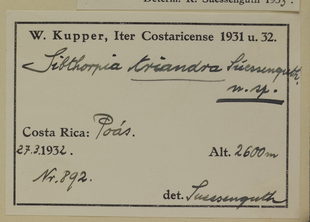 Determ. K. Suessenguth 1933.
W. Kupper, Iter Costaricense 1931 u. 32.
Sibthorpia triandra Suessenguth,
n. sp.
Costa Rica: Poás.
27.3.1932. Alt. 2600m
Nr. 892.
det. Suessenguth